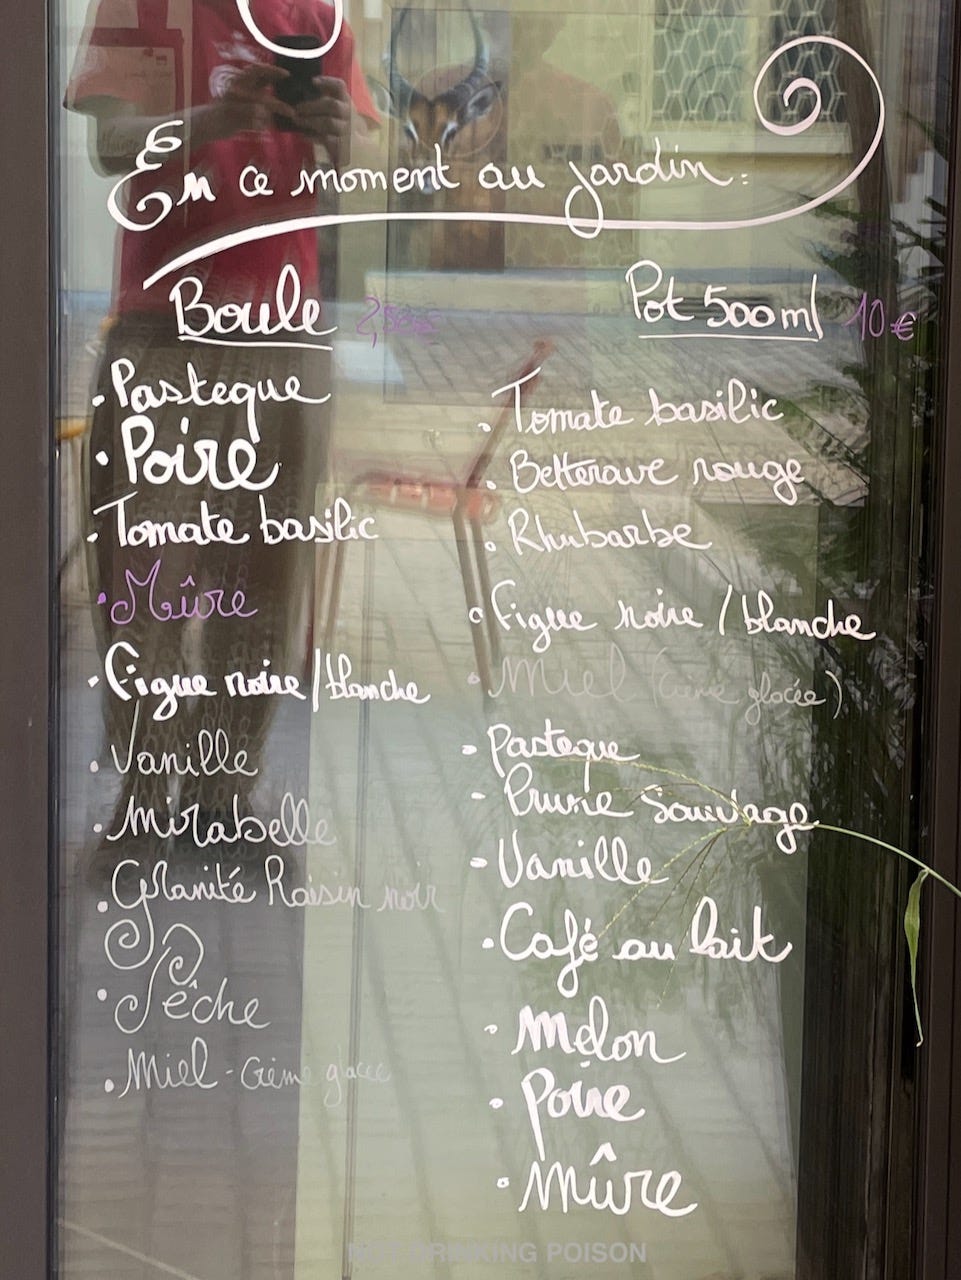 En ce moment au jardin :
Boule 2,50€
• Pasteque
• Poire
• Tomate basilic
• Mûre
• Figue noire / blanche
• Vanille
• Mirabelle
• Granité Raisin noir
• Pêche
• Miel - Crème glacée
Pot 500ml 10€
• Tomate basilic
• Betterave rouge
• Rhubarbe
• Figue noire / blanche
• Miel (Crème glacée)
• Pasteque
• Prune Sauvage
• Vanille
• Café au lait
• Melon
• Poire
• Mûre
NOT DRINKING POISON